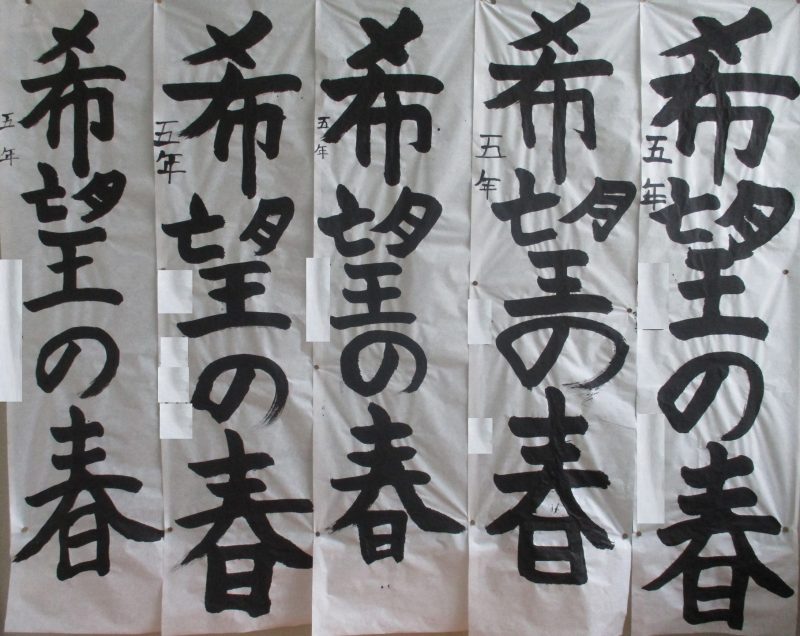 希望の春
五年
希望の春
五年
希望の春
五年
希望の春
五年
希望の春
五年